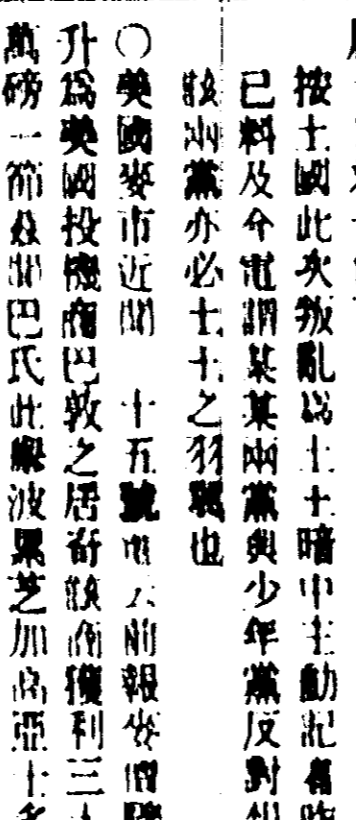 按土國此次叛亂爲土十暗中主動記者昨
已料及今電謂某某兩黨與少年黨反對
該兩黨亦必土十之羽翼也
○英國麥市近聞 十五號電云前報安們
升爲英國投機商巴敦之居奇該商獲利三
萬磅一節茲聞巴氏此舉波累芝加高亞士